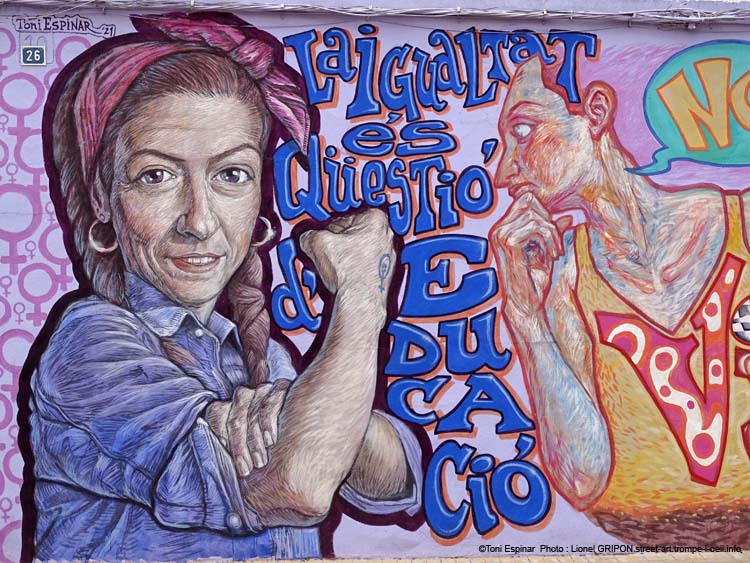 Toni ESPINAR 21
26
La iGuaLTaT
és
QüesTió
d'
E
DU
CA
Ció
NO
Vi
©Toni Espinar Photo : Lionel GRIPON.street-art.trompe-l-oeil.info